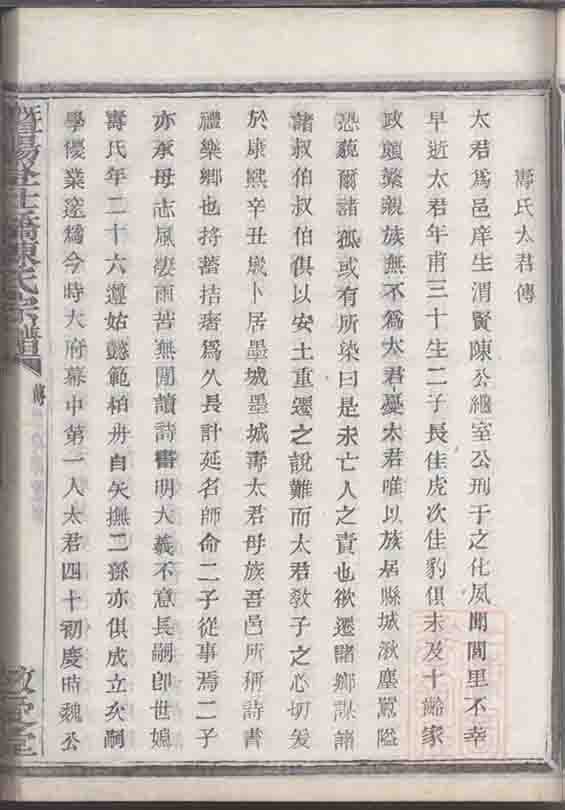 壽氏太君傳
太君爲邑庠生渭賢陳公繼室公刑于之化夙聞閭里不幸
早逝太君年甫三十生二子長佳虎次佳豹俱未及十齡家
政頗繁親族無不爲太君憂太君唯以族居縣城湫塵囂隘
恐藐爾諸孤或有所染曰是未亡人之責也欲遷諸鄉謀諸
諸叔伯叔伯俱以安土重遷之說難而太君敎子之心切爰
於康熙辛丑歲卜居墨城墨城壽太君母族吾邑所稱詩書
禮樂鄉也捋蓄拮据爲久長計延名師命二子從事焉二子
亦承母志風凄雨苦無間讀詩書明大義不意長嗣卽世媳
壽氏年二十六遵姑懿範柏舟自矢撫二孫亦俱成立矣嗣
學優業邃爲今時大府幕中第一人太君四十初慶時魏公
暨陽
橋陳氏宗譜
傳